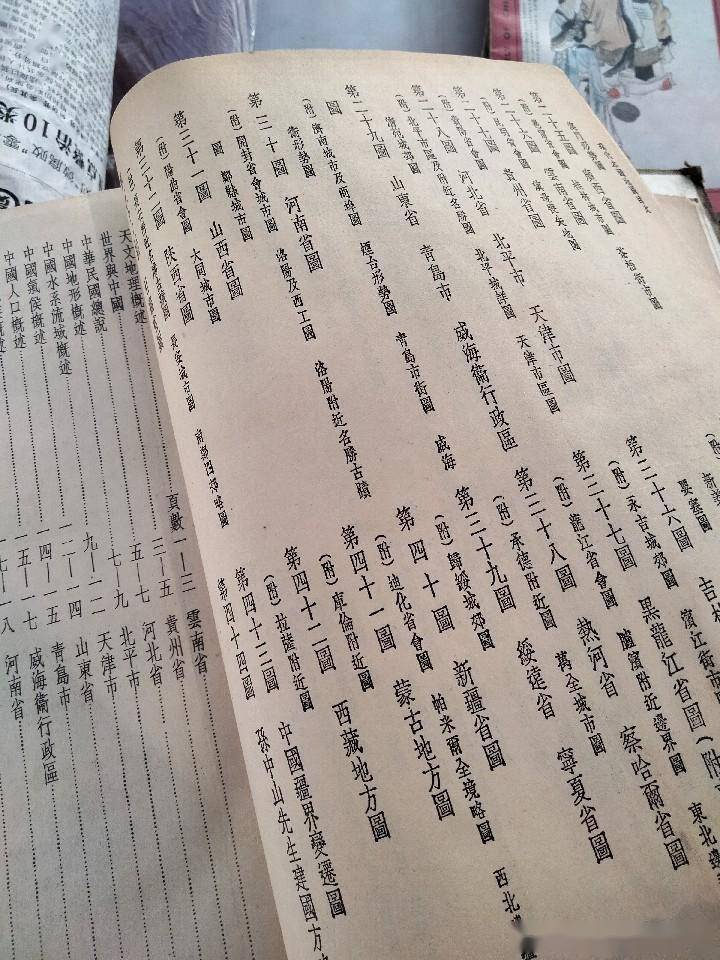 第二十五圖 廣西省圖
第二十六圖 雲南省圖
第二十七圖 貴州省圖
(附) 貴陽省會圖
第二十八圖 河北省 北平市 天津市圖
(附) 北平市區及附近名勝圖 北平城詳圖 天津市區圖
第二十九圖 山東省 青島市 威海衞行政區
圖
(附) 濟南城市及商埠圖 煙台形勢圖 青島市街圖 威海
衞形勢圖
第三十圖 河南省圖
(附) 開封省會城市圖 洛陽及西工圖 洛陽附近名勝古蹟
圖
第三十一圖 山西省圖
(附) 陽曲省會圖 大同城市圖
第三十二圖 陝西省圖
長安城市圖
要塞圖
第三十六圖
(附) 永吉城郊圖 濱江街市
第三十七圖 黑龍江省圖
(附) 龍江省會圖 臚濱附近邊界圖
第三十八圖 熱河省 察哈爾省圖
(附) 承德附近圖 萬全城市圖
第三十九圖 綏遠省 寧夏省圖
(附) 歸綏城郊圖
第四十圖 新疆省圖
(附) 迪化省會圖 帕米爾全境略圖 西北
第四十一圖 蒙古地方圖
(附) 庫倫附近圖
第四十二圖 西藏地方圖
(附) 拉薩附近圖
第四十三圖 中國疆界變遷圖
第四十四圖 孫中山先生建國方
頁數
天文地理概述 一—二
世界與中國 三—五
中華民國總說 五—七
中國地形概述 七—九
中國水系流域概述 九—一二
中國氣候概述 一二—一四
中國人口概述 一四—一五
雲南省
貴州省
河北省
北平市
天津市
山東省
青島市
威海衞行政區
河南省